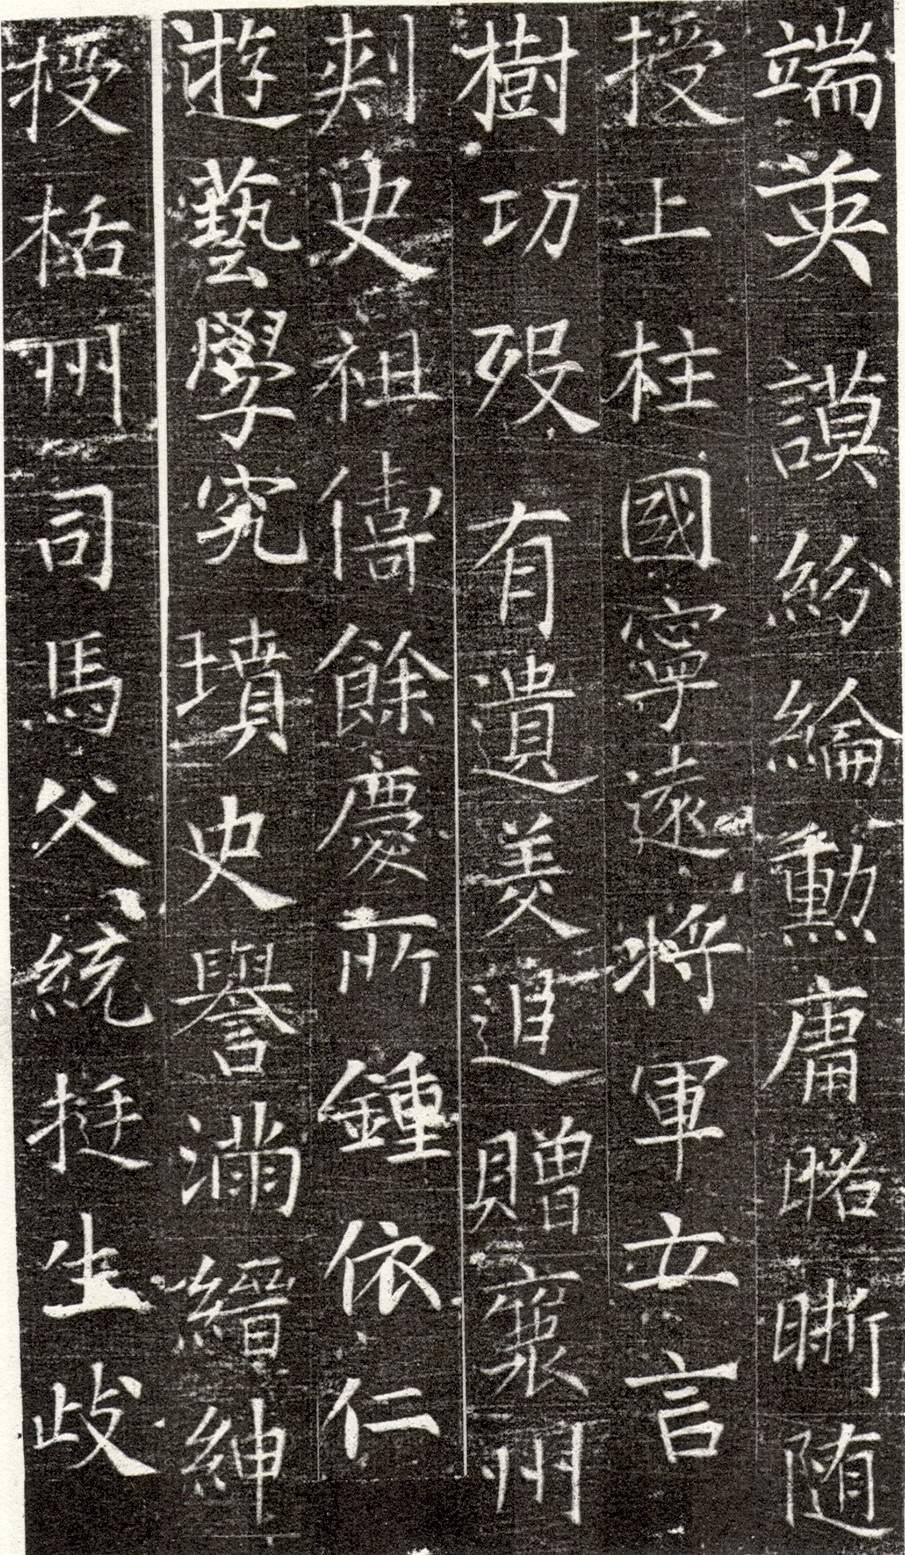 端英謨紛綸勳庸晤晣随
授上柱國寧遠將軍立言
樹功歿有遺美追贈襄州
刾史祖儔餘慶所鍾依仁
遊藝學究墳史譽滿縉紳
授栝州司馬父統挺生歧